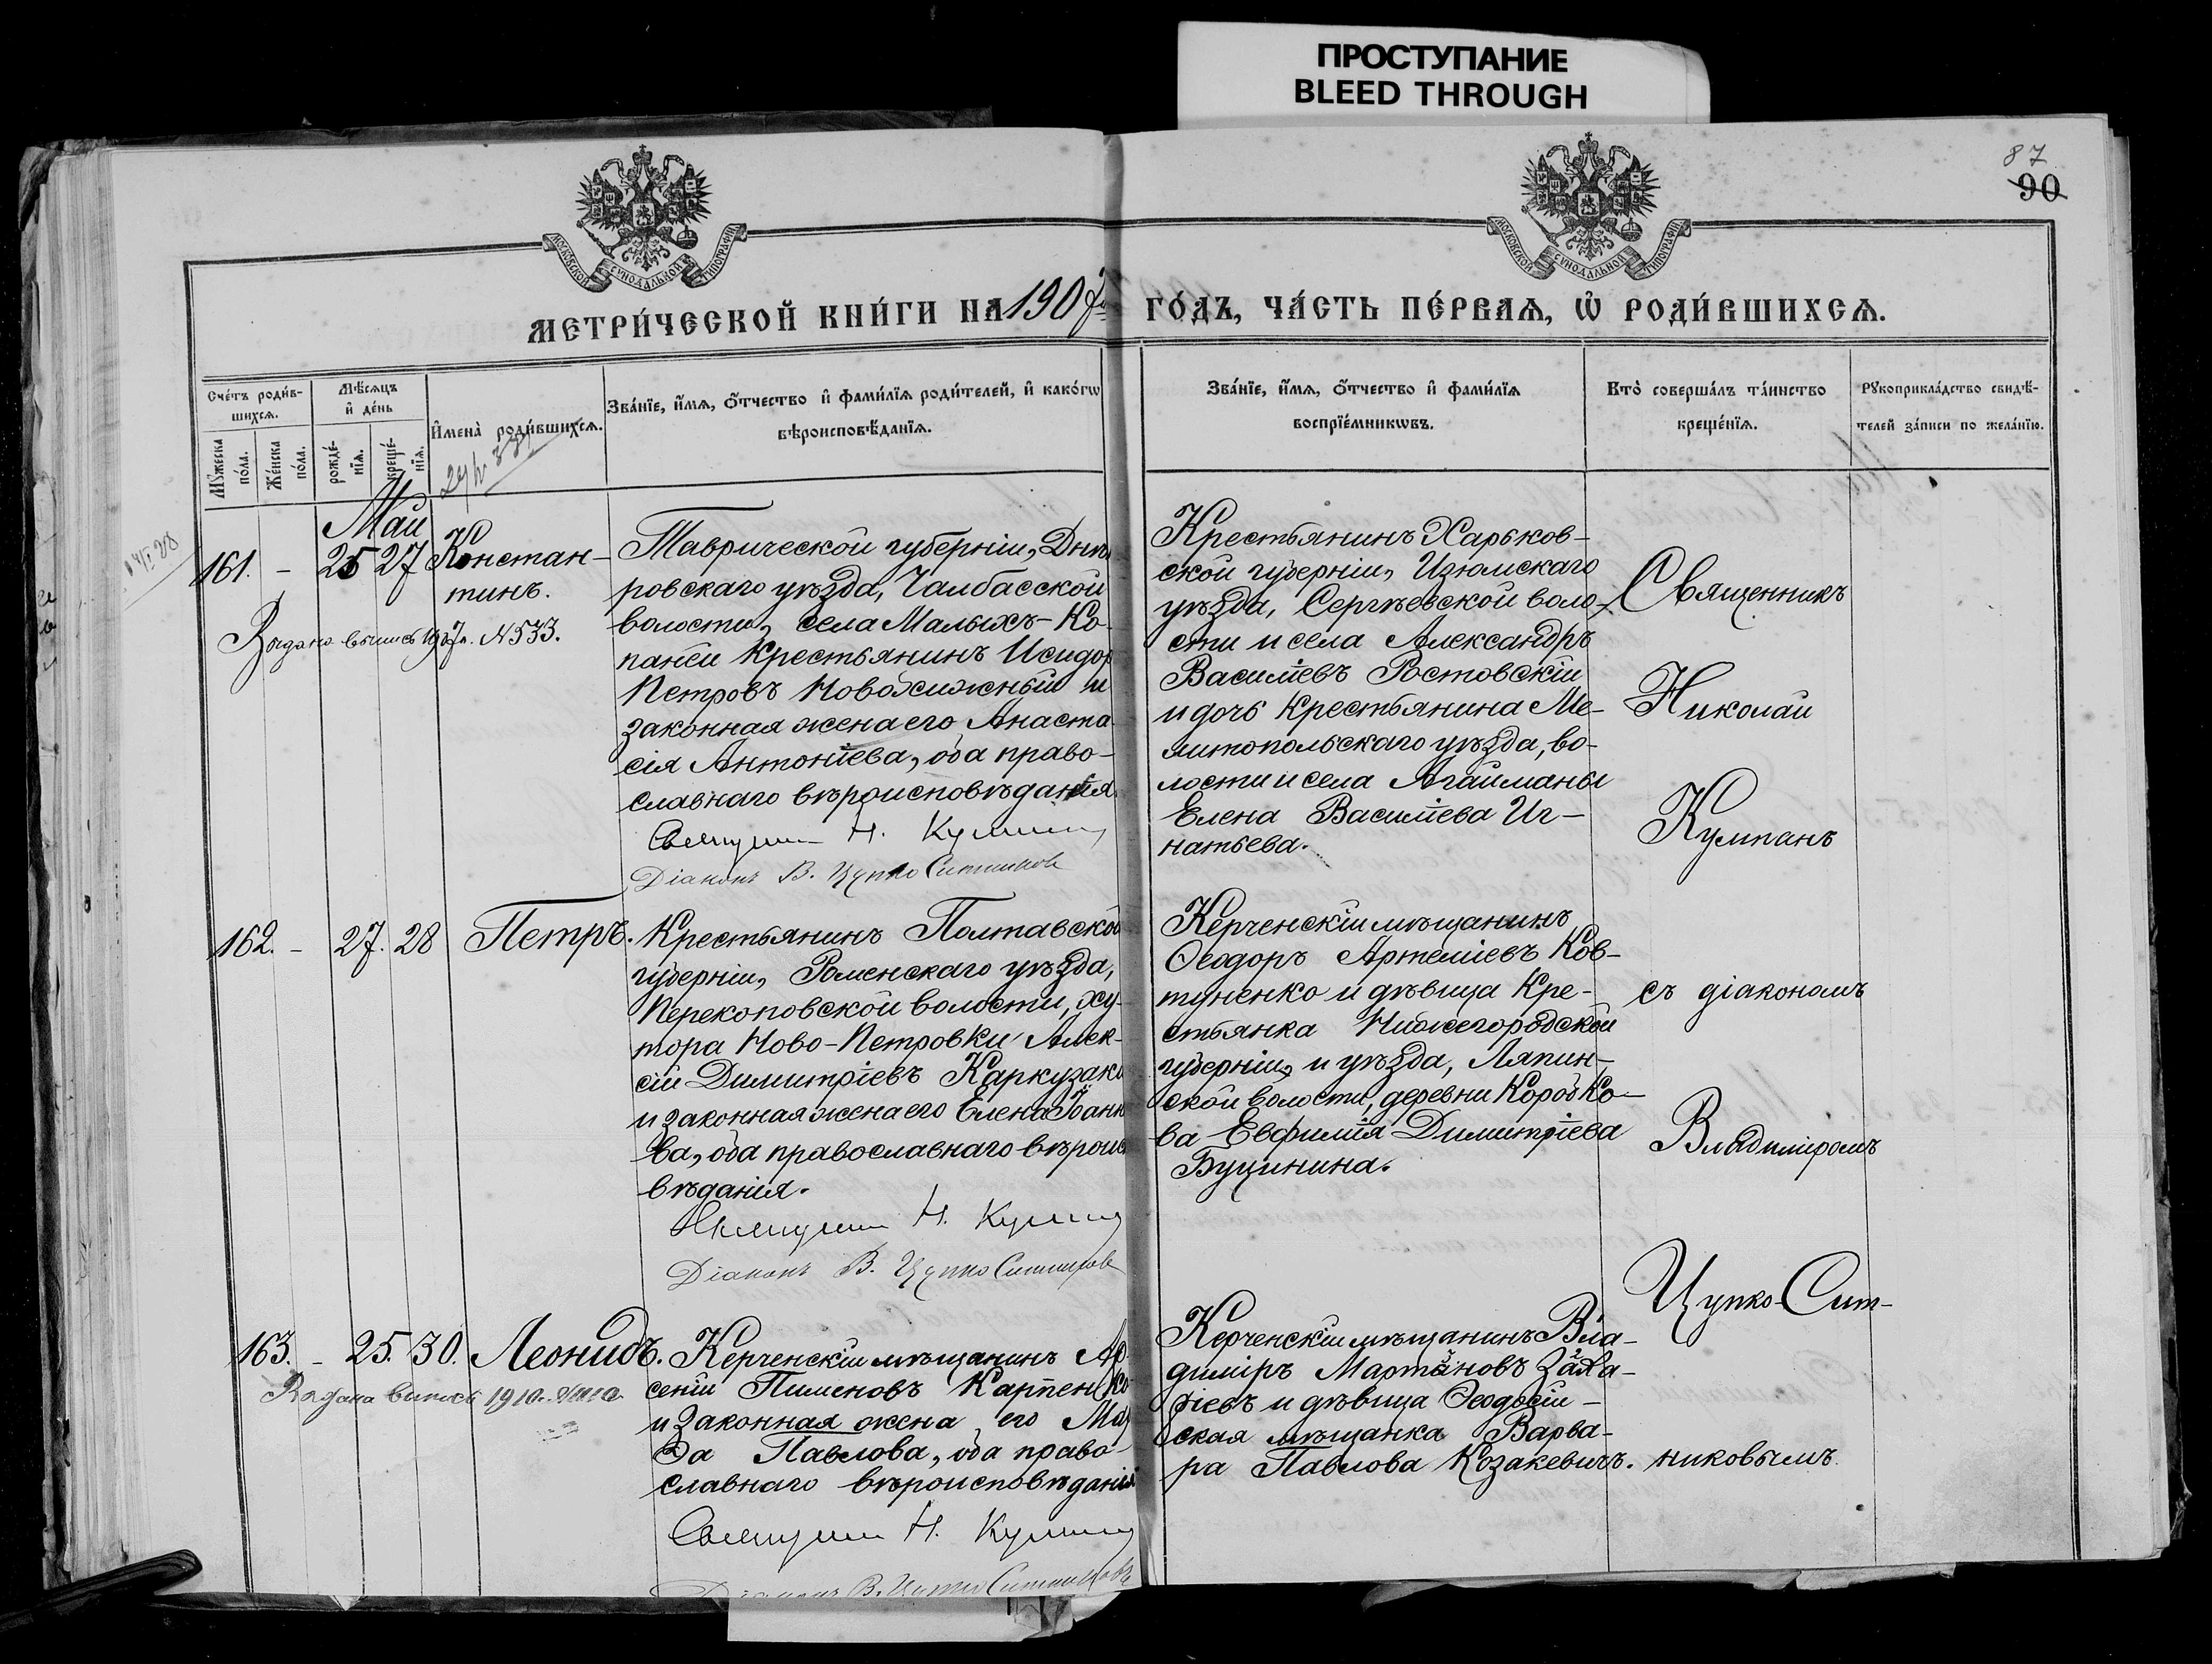 ПРОСТУПАНИЕ
BLEED THROUGH
87
90
МОСКОВСКОЙ СѴНОДАЛЬНОЙ ТИПОГРАФІИ
МОСКОВСКОЙ СѴНОДАЛЬНОЙ ТИПОГРАФІИ
МЕТРИ́ЧЕСКОЙ КНИ́ГИ НА 1907 ГО́ДЪ, ЧА́СТЬ ПЕ́РВАѦ, Ѿ РОДИ́ВШИХСѦ.
Сче́тъ роди́в-
шихсѧ.
Мꙋ́жеска по́ла.
Же́нска по́ла.
Мѣ́сѧцъ
и҆ де́нь
рожде́-
нїѧ.
креще́-
нїѧ.
И҆мена̀ роди́вшихсѧ.
Зва́нїе, и҆́мѧ, ѻ҆́тчество и҆ фами́лїѧ роди́телей, и҆ како́гѡ
вѣроисповѣ́данїѧ.
Зва́нїе, и҆́мѧ, ѻ҆́тчество и҆ фами́лїѧ
воспрїе́мникѡвъ.
Кто̀ соверша́лъ та́инство
креще́нїѧ.
Рꙋкоприкла́дство свидѣ́-
телей за́писи по жела́нїю.
Май
161. - 25 27 Констан-
тинъ.
Выдана выпись 1907г. N 533.
Таврической губерніи, Днѣп
ровскаго уѣзда, Чалбасской
волости, села Малыхъ-Ко-
паней крестьянинъ Исидор
Петровъ Новохижный и
законная жена его Анаста
сія Антоніева, оба право-
славнаго вѣроисповѣданія.
Священник Н. Кумпан
Діаконъ В. Цупко Ситников
Крестьянинъ Харьков-
ской губерніи, Изюмскаго
уѣзда, Сергѣевской воло-
сти и села Александръ
Василіевъ Ростовскій
и дочь крестьянина Ме-
литопольскаго уѣзда, во-
лости и села Агайманы
Елена Василіева Иг-
натьева.
Священникъ
Николай
Кумпанъ
162. - 27. 28 Петръ.
Крестьянинъ Полтавской
губерніи, Роменскаго уѣзда,
Перекоповской волости, ху-
тора Ново-Петровки Алек-
сій Димитріевъ Каркузаки
и законная жена его Елена Іоанно
ва, оба православнаго вѣроиспо
вѣданія.
Священник Н. Кумпан
Діаконъ В. Цупко Ситников
Керченскій мѣщанинъ
Ѳеодоръ Артеміевъ Ков-
туненко и дѣвица кре-
стьянка Нижегородской
губерніи, и уѣзда, Ляпин-
ской волости, деревни Коробко-
ва Евфимія Димитріева
Буцинина.
съ діакономъ
Владиміромъ
Цупко-Сит-
никовымъ.
163. - 25. 30. Леонидъ.
Выдана выпись 1910.
Керченскій мѣщанинъ Ар
сеній Пименовъ Карпенко
и законная жена его
Павлова, оба право-
славнаго вѣроисповѣданія
Священник Н. Кумпан
Діаконъ В. Цупко Ситников
Керченскій мѣщанинъ Вла-
диміръ Мартыновъ
и дѣвица Ѳеодосій-
ская мѣщанка Варва-
ра Павлова Козакевичъ.